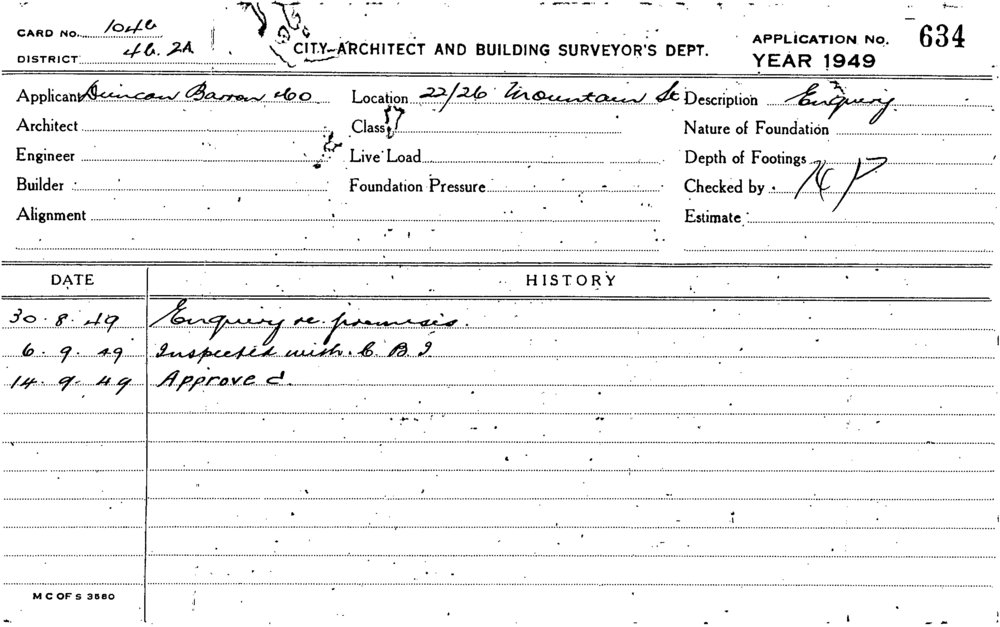 CARD No. 1046
DISTRICT 4b. 2A
CITY ARCHITECT AND BUILDING SURVEYOR'S DEPT.
APPLICATION No. 634
YEAR 1949
Applicant Duncan Barron & Co Location 22/26 Mountain St Description Enquiry
Architect Class Nature of Foundation
Engineer Live Load Depth of Footings
Builder Foundation Pressure Checked by
Alignment Estimate
DATE HISTORY
30.8.49 Enquiry re premisis.
6.9.49 Inspected with C.B.I
14.9.49 Approved.
M C OF S 3580